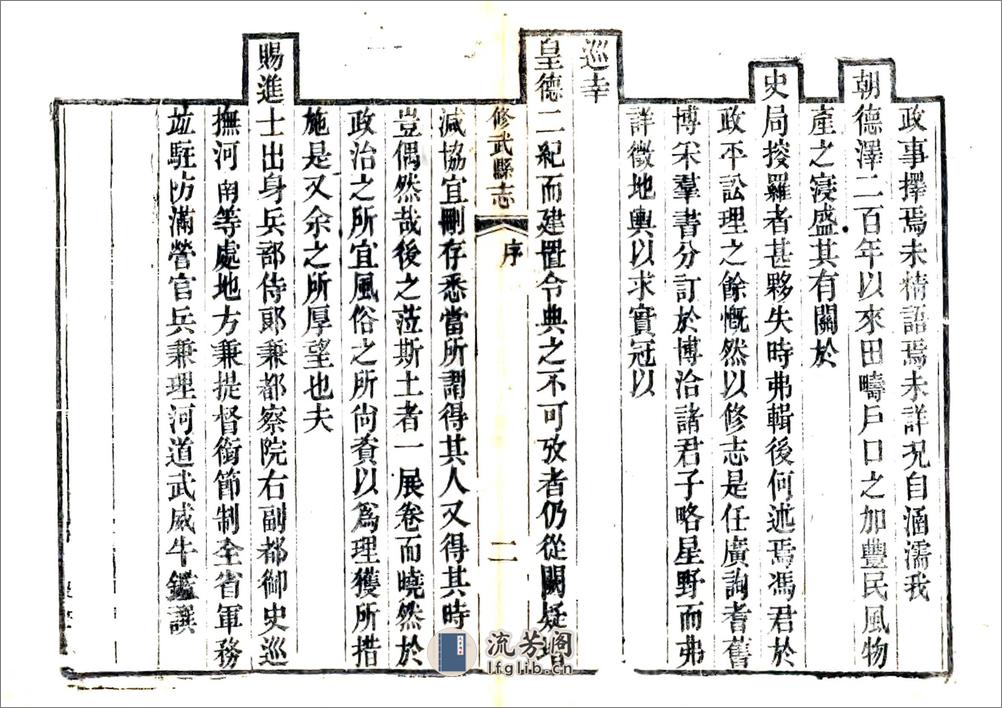 政事擇焉未精語焉未詳況自涵濡我
朝德澤二百年以來田疇戶口之加豐民風物
產之寖盛其有關於
史局掞羅者甚夥失時弗輯後何述焉馮君於
政平訟理之餘慨然以修志是任廣詢耆舊
博宷羣書分訂於博洽諸君子略星野而弗
詳徵地輿以求實冠以
巡幸
皇德二紀而建置令典之不可攷者仍從闕疑增
修武縣志
序
二
減協宜刪存悉當所謂得其人又得其時
豈偶然哉後之蒞斯土者一展卷而曉然於
政治之所宜風俗之所尙資以爲理獲所措
施是又余之所厚望也夫
賜進士出身兵部侍郞兼都察院右副都御史巡
撫河南等處地方兼提督銜節制全省軍務
竝駐防滿營官兵兼理河道武威牛鑑譔
流芳閣
lfglib.cn